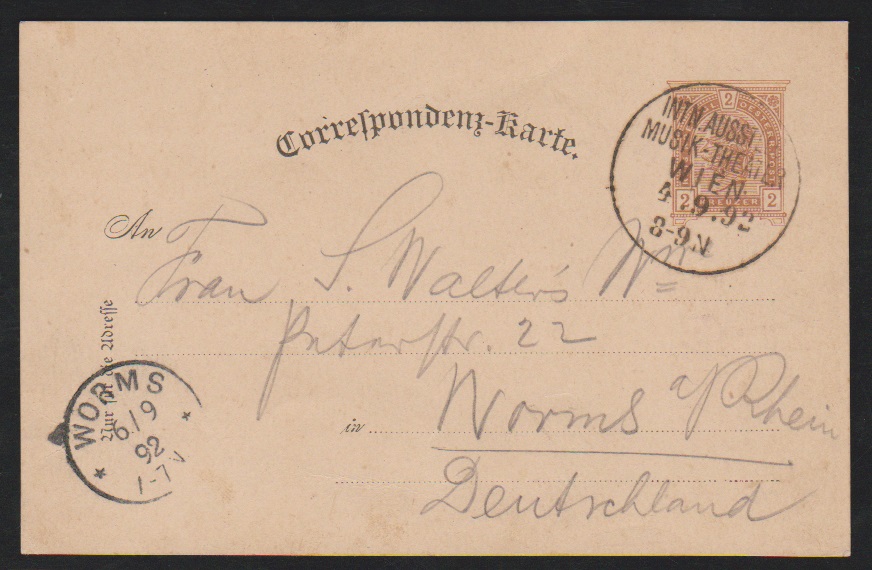 Correspondenz-Karte.
2
2 KREUZER 2
INTN. AUSST.
MUSIK-THEATER
WIEN.
4.9.92
8-9N
An
Frau S. Walter's Ww
Peterstr. 22
in Worms a/Rhein
Deutschland
Nur für die Adresse
WORMS
6/9
92
1-7V